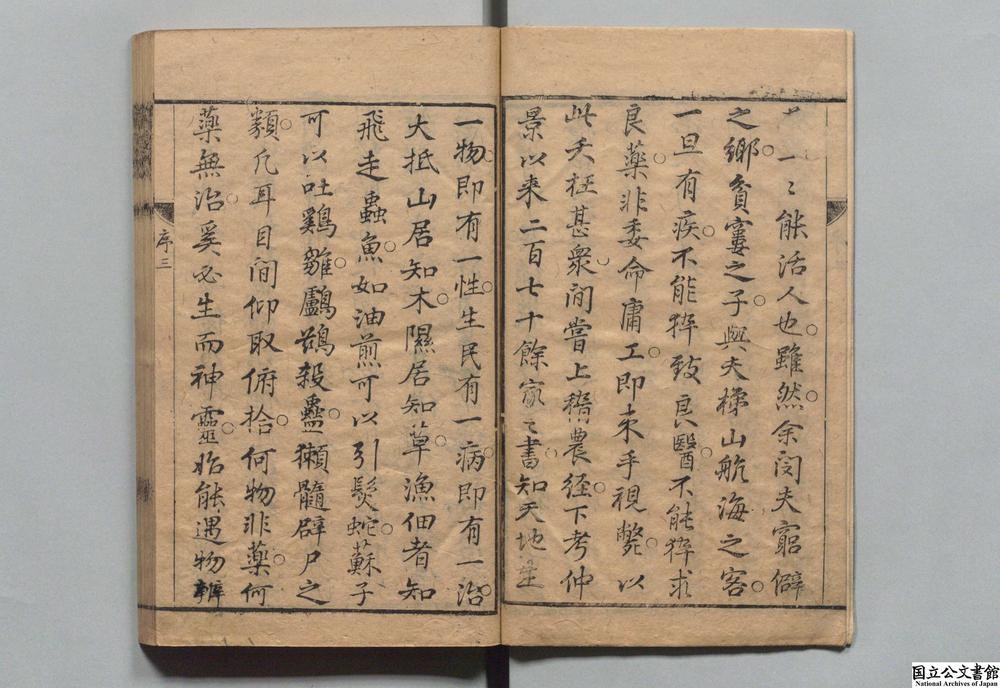 一〻能活人也雖然余閔夫窮僻
之鄉貧窶之子與夫梯山航海之客
一旦有疾不能猝致良醫不能猝求
良藥非委命庸工即束手視斃以
此夭枉甚衆間嘗上稽農経下考仲
景以来二百七十餘家〻書知天地生
一物即有一性生民有一病即有一治
大抵山居知木隰居知草漁佃者知
飛走蟲魚如油煎可以引髮蛇蘇子
可以吐鷄雛鸕鷀殺蠱獺髓辟尸之
類凡耳目間仰取俯拾何物非藥何
藥無治奚必生而神靈始能遇物辨
序三
国立公文書館
National Archives of Japan